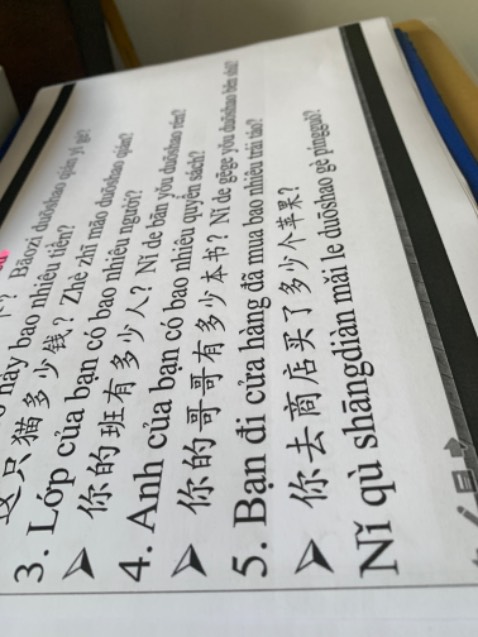 ? Bāozi duōshao qián yí gè?
này bao nhiêu tiền?
这只猫多少钱? Zhè zhī māo duōshao qián?
3. Lớp của bạn có bao nhiêu người?
➢ 你的班有多少人? Nǐ de bān yǒu duōshao rén?
4. Anh của bạn có bao nhiêu quyển sách?
➢ 你的哥哥有多少本书? Nǐ de gēge yǒu duōshao běn shū?
5. Bạn đi cửa hàng đã mua bao nhiêu trái táo?
➢ 你去商店买了多少个苹果?
Nǐ qù shāngdiàn mǎi le duōshao gè píngguǒ?